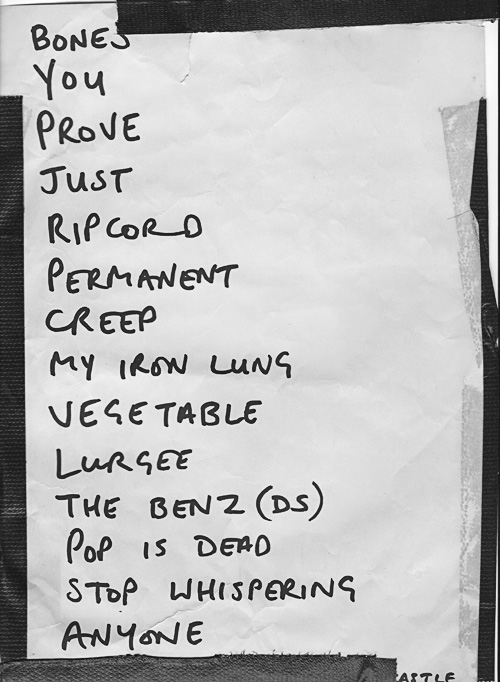 BONES
YOU
PROVE
JUST
RIPCORD
PERMANENT
CREEP
MY IRON LUNG
VEGETABLE
LURGEE
THE BENZ (DS)
POP IS DEAD
STOP WHISPERING
ANYONE
ASTLE